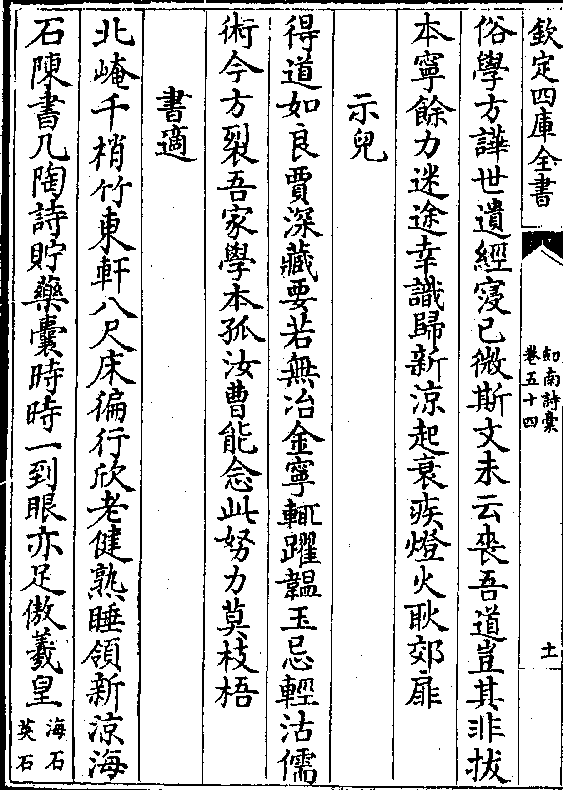 欽定四庫全書
劍南詩稾
卷五十四
土
俗學方譁世遺經寖已微斯文未云喪吾道豈其非拔
本寧餘力迷途幸識歸新涼起衰疾燈火耿郊扉
示兒
得道如良賈深藏要若無冶金寧輒躍韞玉忌輕沽儒
術今方裂吾家學本孤汝曹能念此努力莫枝梧
書適
北崦千梢竹東軒八尺床徧行欣老健熟睡領新涼海
石陳書几陶詩貯藥囊時時一到眼亦足傲羲皇海石
英石